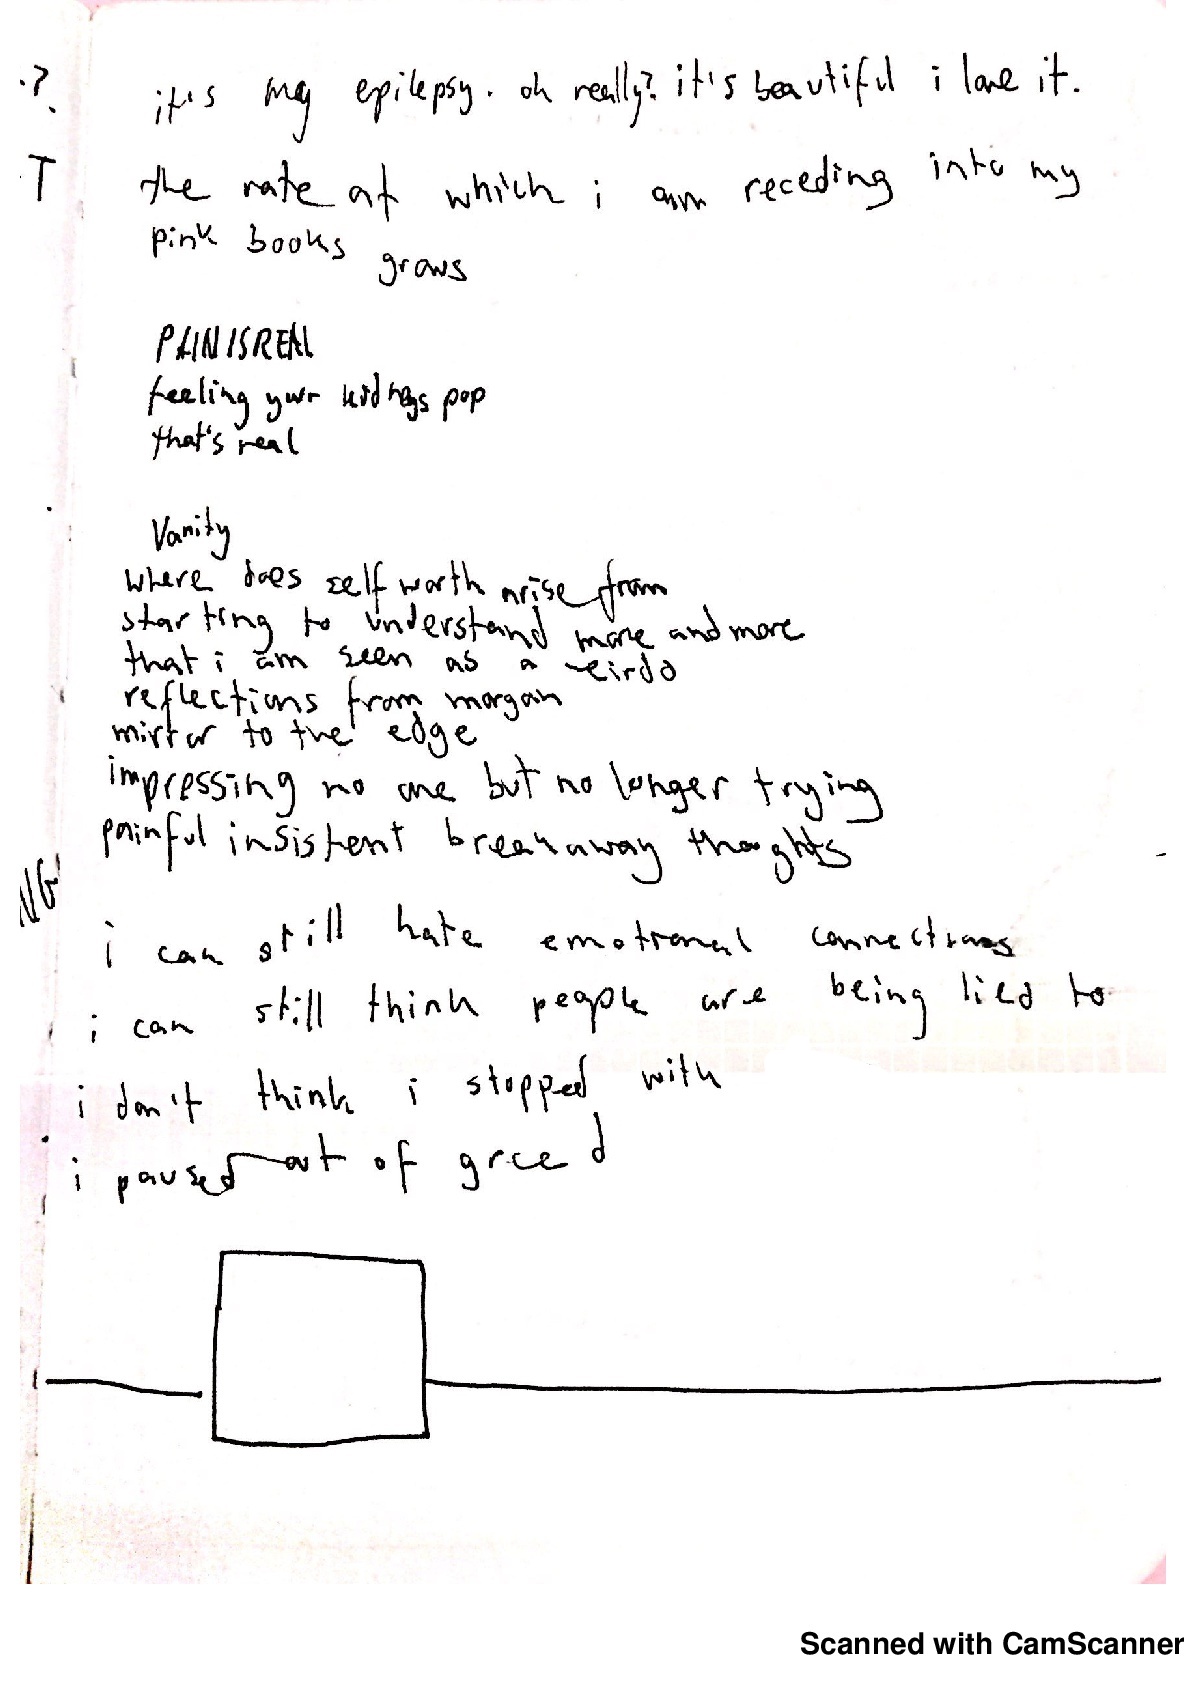 .?
it's my epilepsy. oh really? it's beautiful i love it.
T
the rate at which i am receding into my
pink books grows
PAIN IS REAL
feeling your kidneys pop
that's real
Vanity
where does self worth arise from
starting to understand more and more
that i am seen as a weirdo
reflections from morgan
mirror to the edge
impressing no one but no longer trying
painful insistent breakaway thoughts
NG
i can still hate emotional connections
i can still think people are being lied to
i don't think i stopped with
i paused out of greed
Scanned with CamScanner